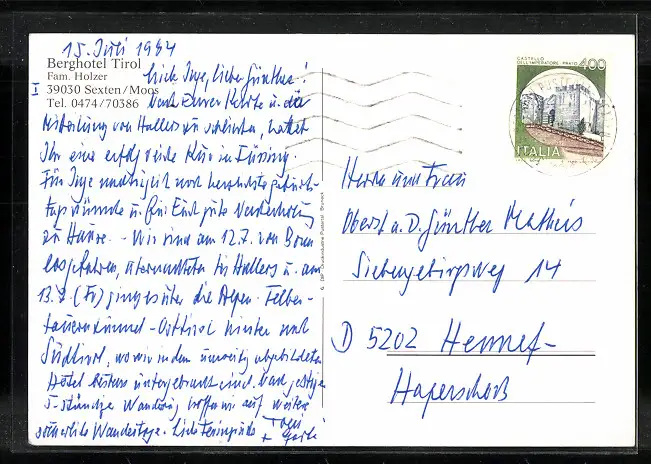 15. Juli 1984
Berghotel Tirol
Fam. Holzer
39030 Sexten/Moos
Tel. 0474/70386
I
Liebe Inge, lieber Günther!
Nach Eurer Karte u. der
Mitteilung von Hallers zu schließen, hattet
Ihr eine erfolgreiche Kur in Füssing.
Für Inge nachträglich noch herzliche Geburts-
tagswünsche u. für Euch gute Nacherholung
zu Hause. - Wir sind am 12.7. von Bonn
losgefahren, übernachteten bei Hallers u. am
13.7. (Fr) ging es über die Alpen. Felber-
tauerntunnel - Osttirol hinter nach
Südtirol, wo wir in dem umseitig abgebildeten
Hotel bestens untergebracht sind. Nach gestriger
5-stündige Wanderung hoffen wir auf weitere
sonnerliche Wandertage.
CASTELLO
DELL'IMPERATORE PRATO
400
ITALIA
Herrn und Frau
Oberst a. D. Günther Matheis
Siebengebirgsweg 14
D 5202 Hennef-
Haperschoß